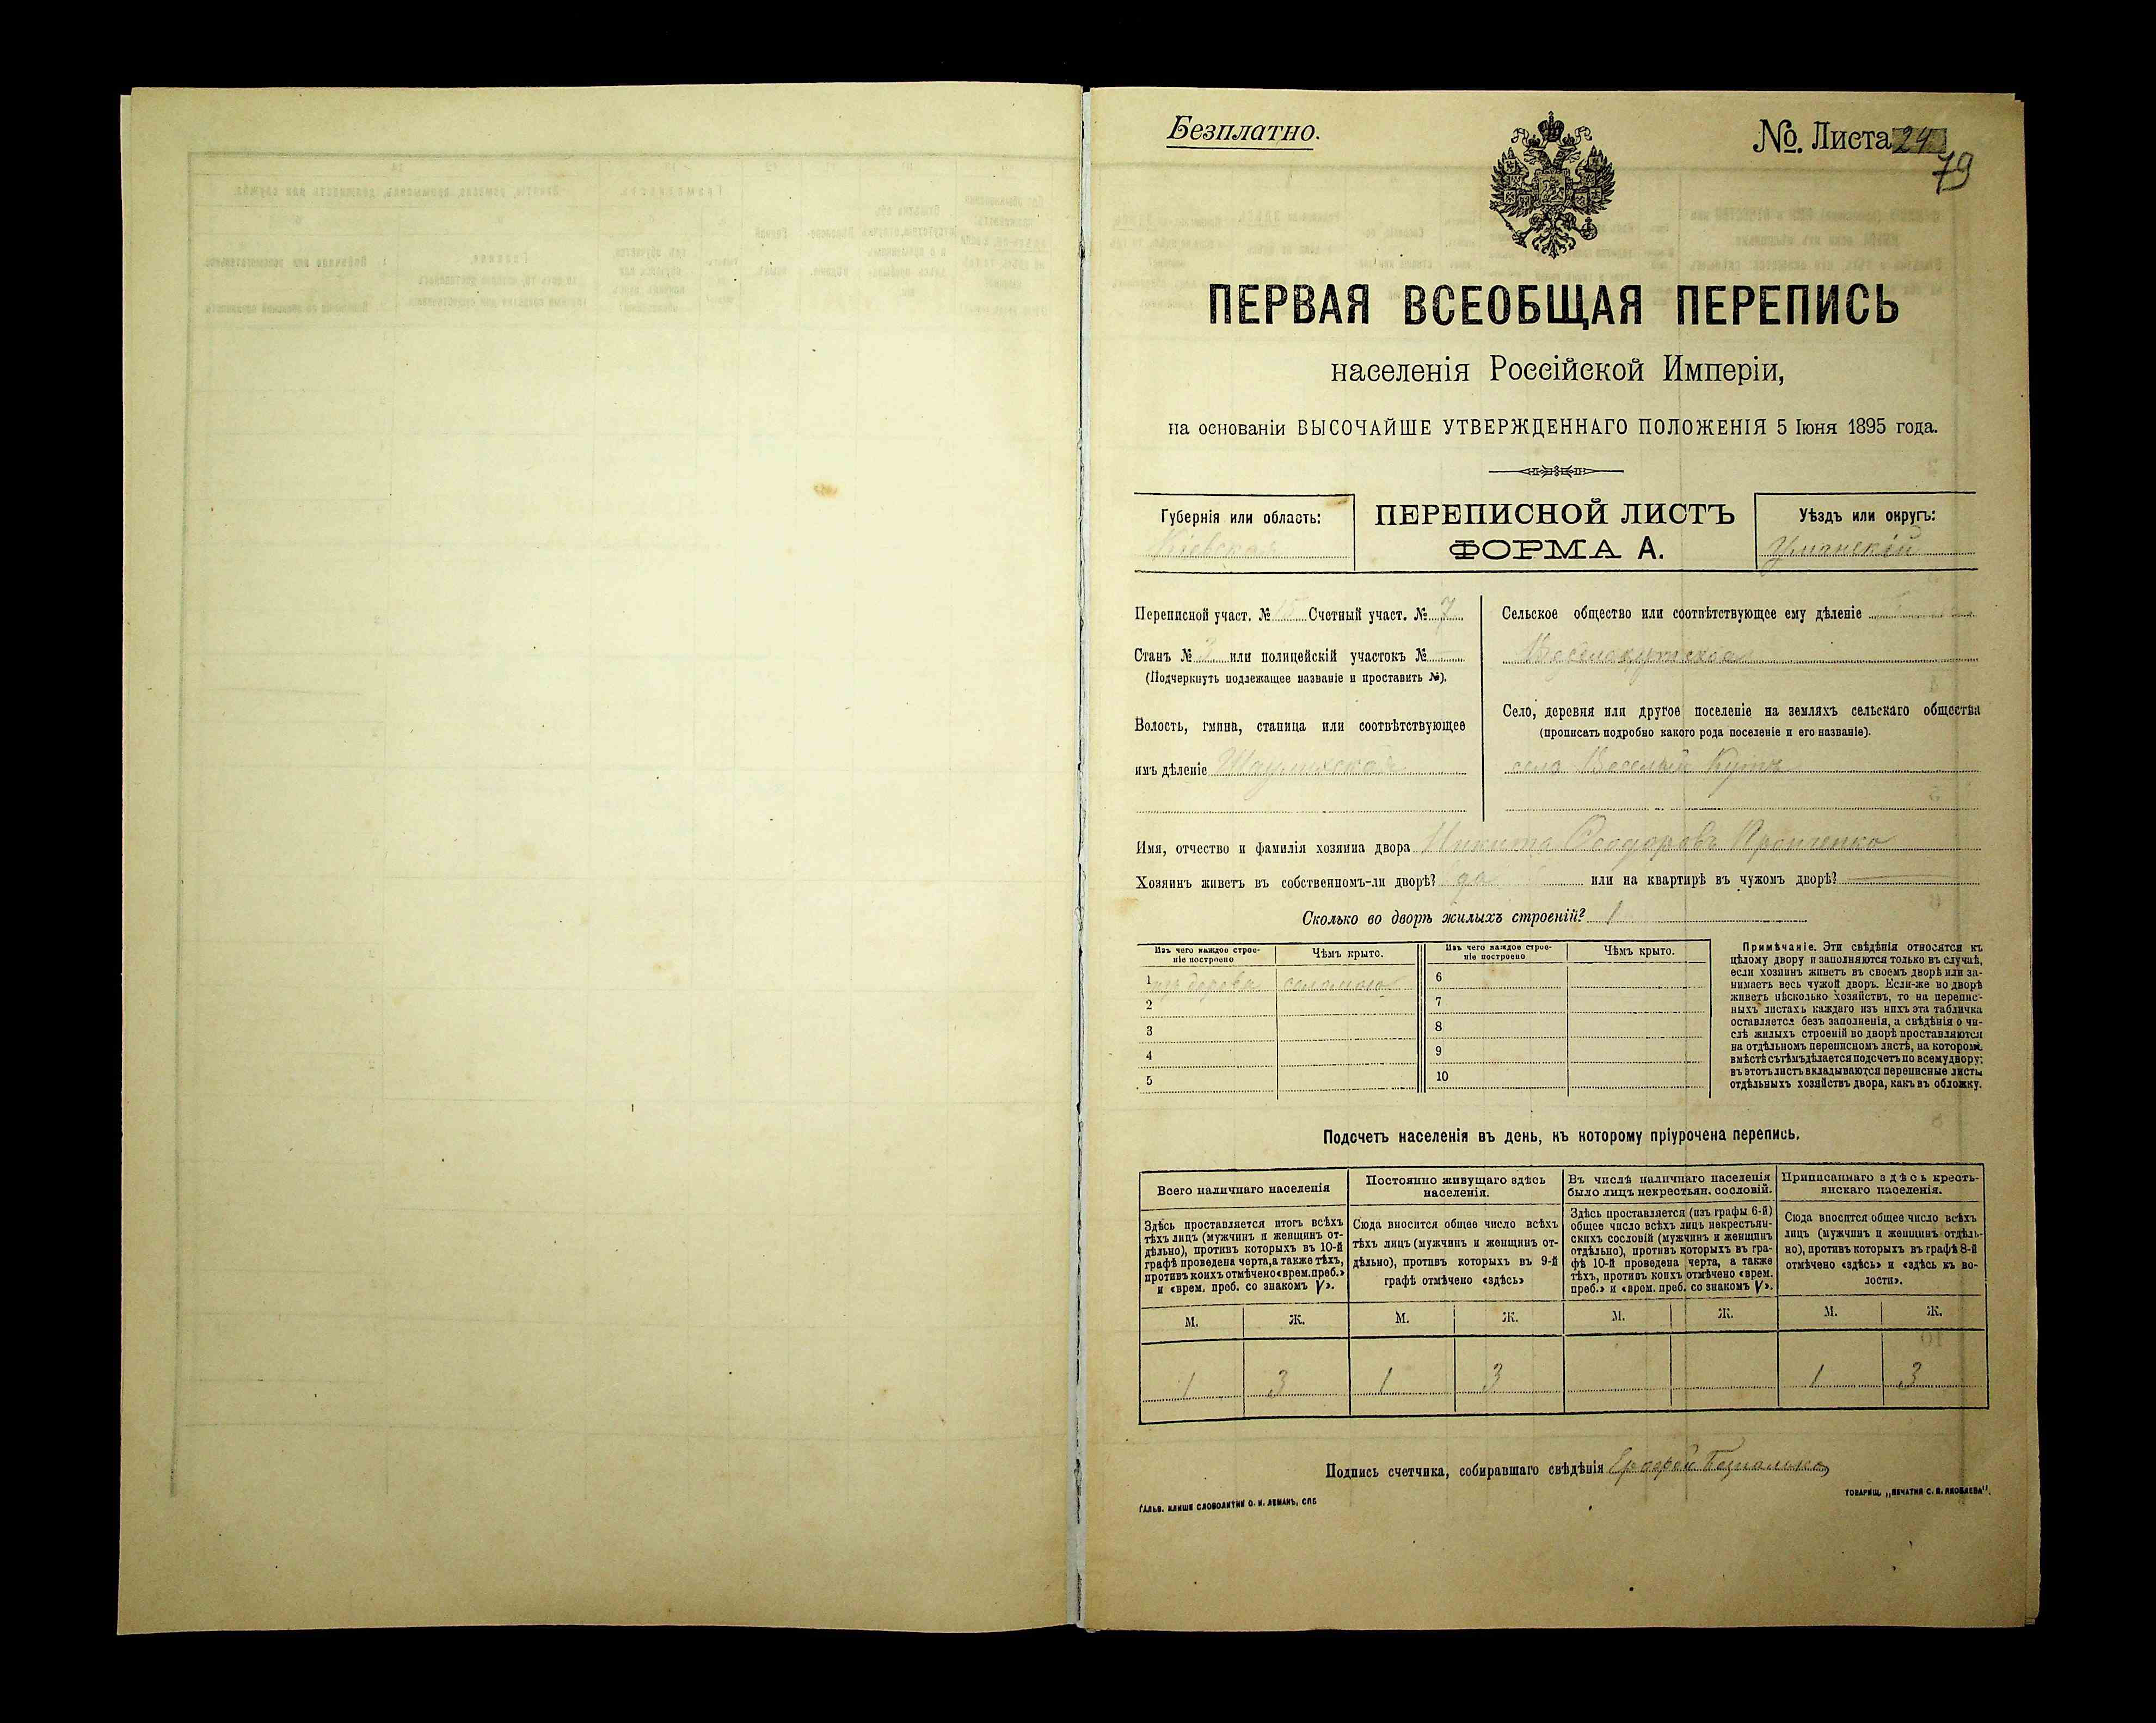 Безплатно.
№. Листа 24
79
ПЕРВАЯ ВСЕОБЩАЯ ПЕРЕПИСЬ
населенія Россійской Имперіи,
на основаніи ВЫСОЧАЙШЕ УТВЕРЖДЕННАГО ПОЛОЖЕНІЯ 5 Іюня 1895 года.
Губернія или область:
Кіевская
ПЕРЕПИСНОЙ ЛИСТЪ
ФОРМА А.
Уѣздъ или округъ:
Уманскій
Переписной участ. № 15 Счетный участ. № 7
Станъ № 3 или полицейскій участокъ №
(Подчеркнуть подлежащее названіе и проставить №).
Волость, гмина, станица или соотвѣтствующее
имъ дѣленіе
Сельское общество или соотвѣтствующее ему дѣленіе
Веселокутское
Село, деревня или другое поселеніе на земляхъ сельскаго общества
(прописать подробно какого рода поселеніе и его названіе).
село Веселый Кутъ
Имя, отчество и фамилія хозяина двора Никита Ѳеодоровъ
Хозяинъ живетъ въ собственномъ-ли дворѣ? да или на квартирѣ въ чужомъ дворѣ? —
Сколько во дворѣ жилыхъ строеній? 1
Изъ чего каждое строе-
ніе построено
Чѣмъ крыто.
1 изъ дерева соломою
2
3
4
5
Изъ чего каждое строе-
ніе построено
Чѣмъ крыто.
6
7
8
9
10
Примѣчаніе. Эти свѣдѣнія относятся къ
цѣлому двору и заполняются только въ случаѣ,
если хозяинъ живетъ въ своемъ дворѣ или за-
нимаетъ весь чужой дворъ. Если-же во дворѣ
живетъ нѣсколько хозяйствъ, то на перепис-
ныхъ листахъ каждаго изъ нихъ эта табличка
оставляется безъ заполненія, а свѣдѣнія о чи-
слѣ жилыхъ строеній во дворѣ проставляются
на отдѣльномъ переписномъ листѣ, на которомъ
вмѣстѣ съ тѣмъ дѣлается подсчетъ по всему двору;
въ этотъ листъ вкладываются переписные листы
отдѣльныхъ хозяйствъ двора, какъ въ обложку.
Подсчетъ населенія въ день, къ которому пріурочена перепись.
Всего наличнаго населенія
Здѣсь проставляется итогъ всѣхъ
тѣхъ лицъ (мужчинъ и женщинъ от-
дѣльно), противъ которыхъ въ 10-й
графѣ проведена черта, а также тѣхъ,
противъ коихъ отмѣчено «врем. преб.»
и «врем. преб. со знакомъ V».
М. Ж.
1 3
Постоянно живущаго здѣсь
населенія.
Сюда вносится общее число всѣхъ
тѣхъ лицъ (мужчинъ и женщинъ от-
дѣльно), противъ которыхъ въ 9-й
графѣ отмѣчено «здѣсь»
М. Ж.
1 3
Въ числѣ наличнаго населенія
было лицъ некрестьян. сословій.
Здѣсь проставляется (изъ графы 6-й)
общее число всѣхъ лицъ некрестьян-
скихъ сословій (мужчинъ и женщинъ
отдѣльно), противъ которыхъ въ гра-
фѣ 10-й проведена черта, а также
тѣхъ, противъ коихъ отмѣчено «врем.
преб.» и «врем. преб. со знакомъ V».
М. Ж.
Приписаннаго здѣсь кресть-
янскаго населенія.
Сюда вносится общее число всѣхъ
лицъ (мужчинъ и женщинъ отдѣль-
но), противъ которыхъ въ графѣ 8-й
отмѣчено «здѣсь» и «здѣсь въ во-
лости».
М. Ж.
1 3
Подпись счетчика, собиравшаго свѣдѣнія
ГАЛЬВ. КЛИШЕ СЛОВОЛИТНИ О. И. ЛЕМАНЪ, СПБ
ТОВАРИЩ. „ПЕЧАТНЯ С. П. ЯКОВЛЕВА".